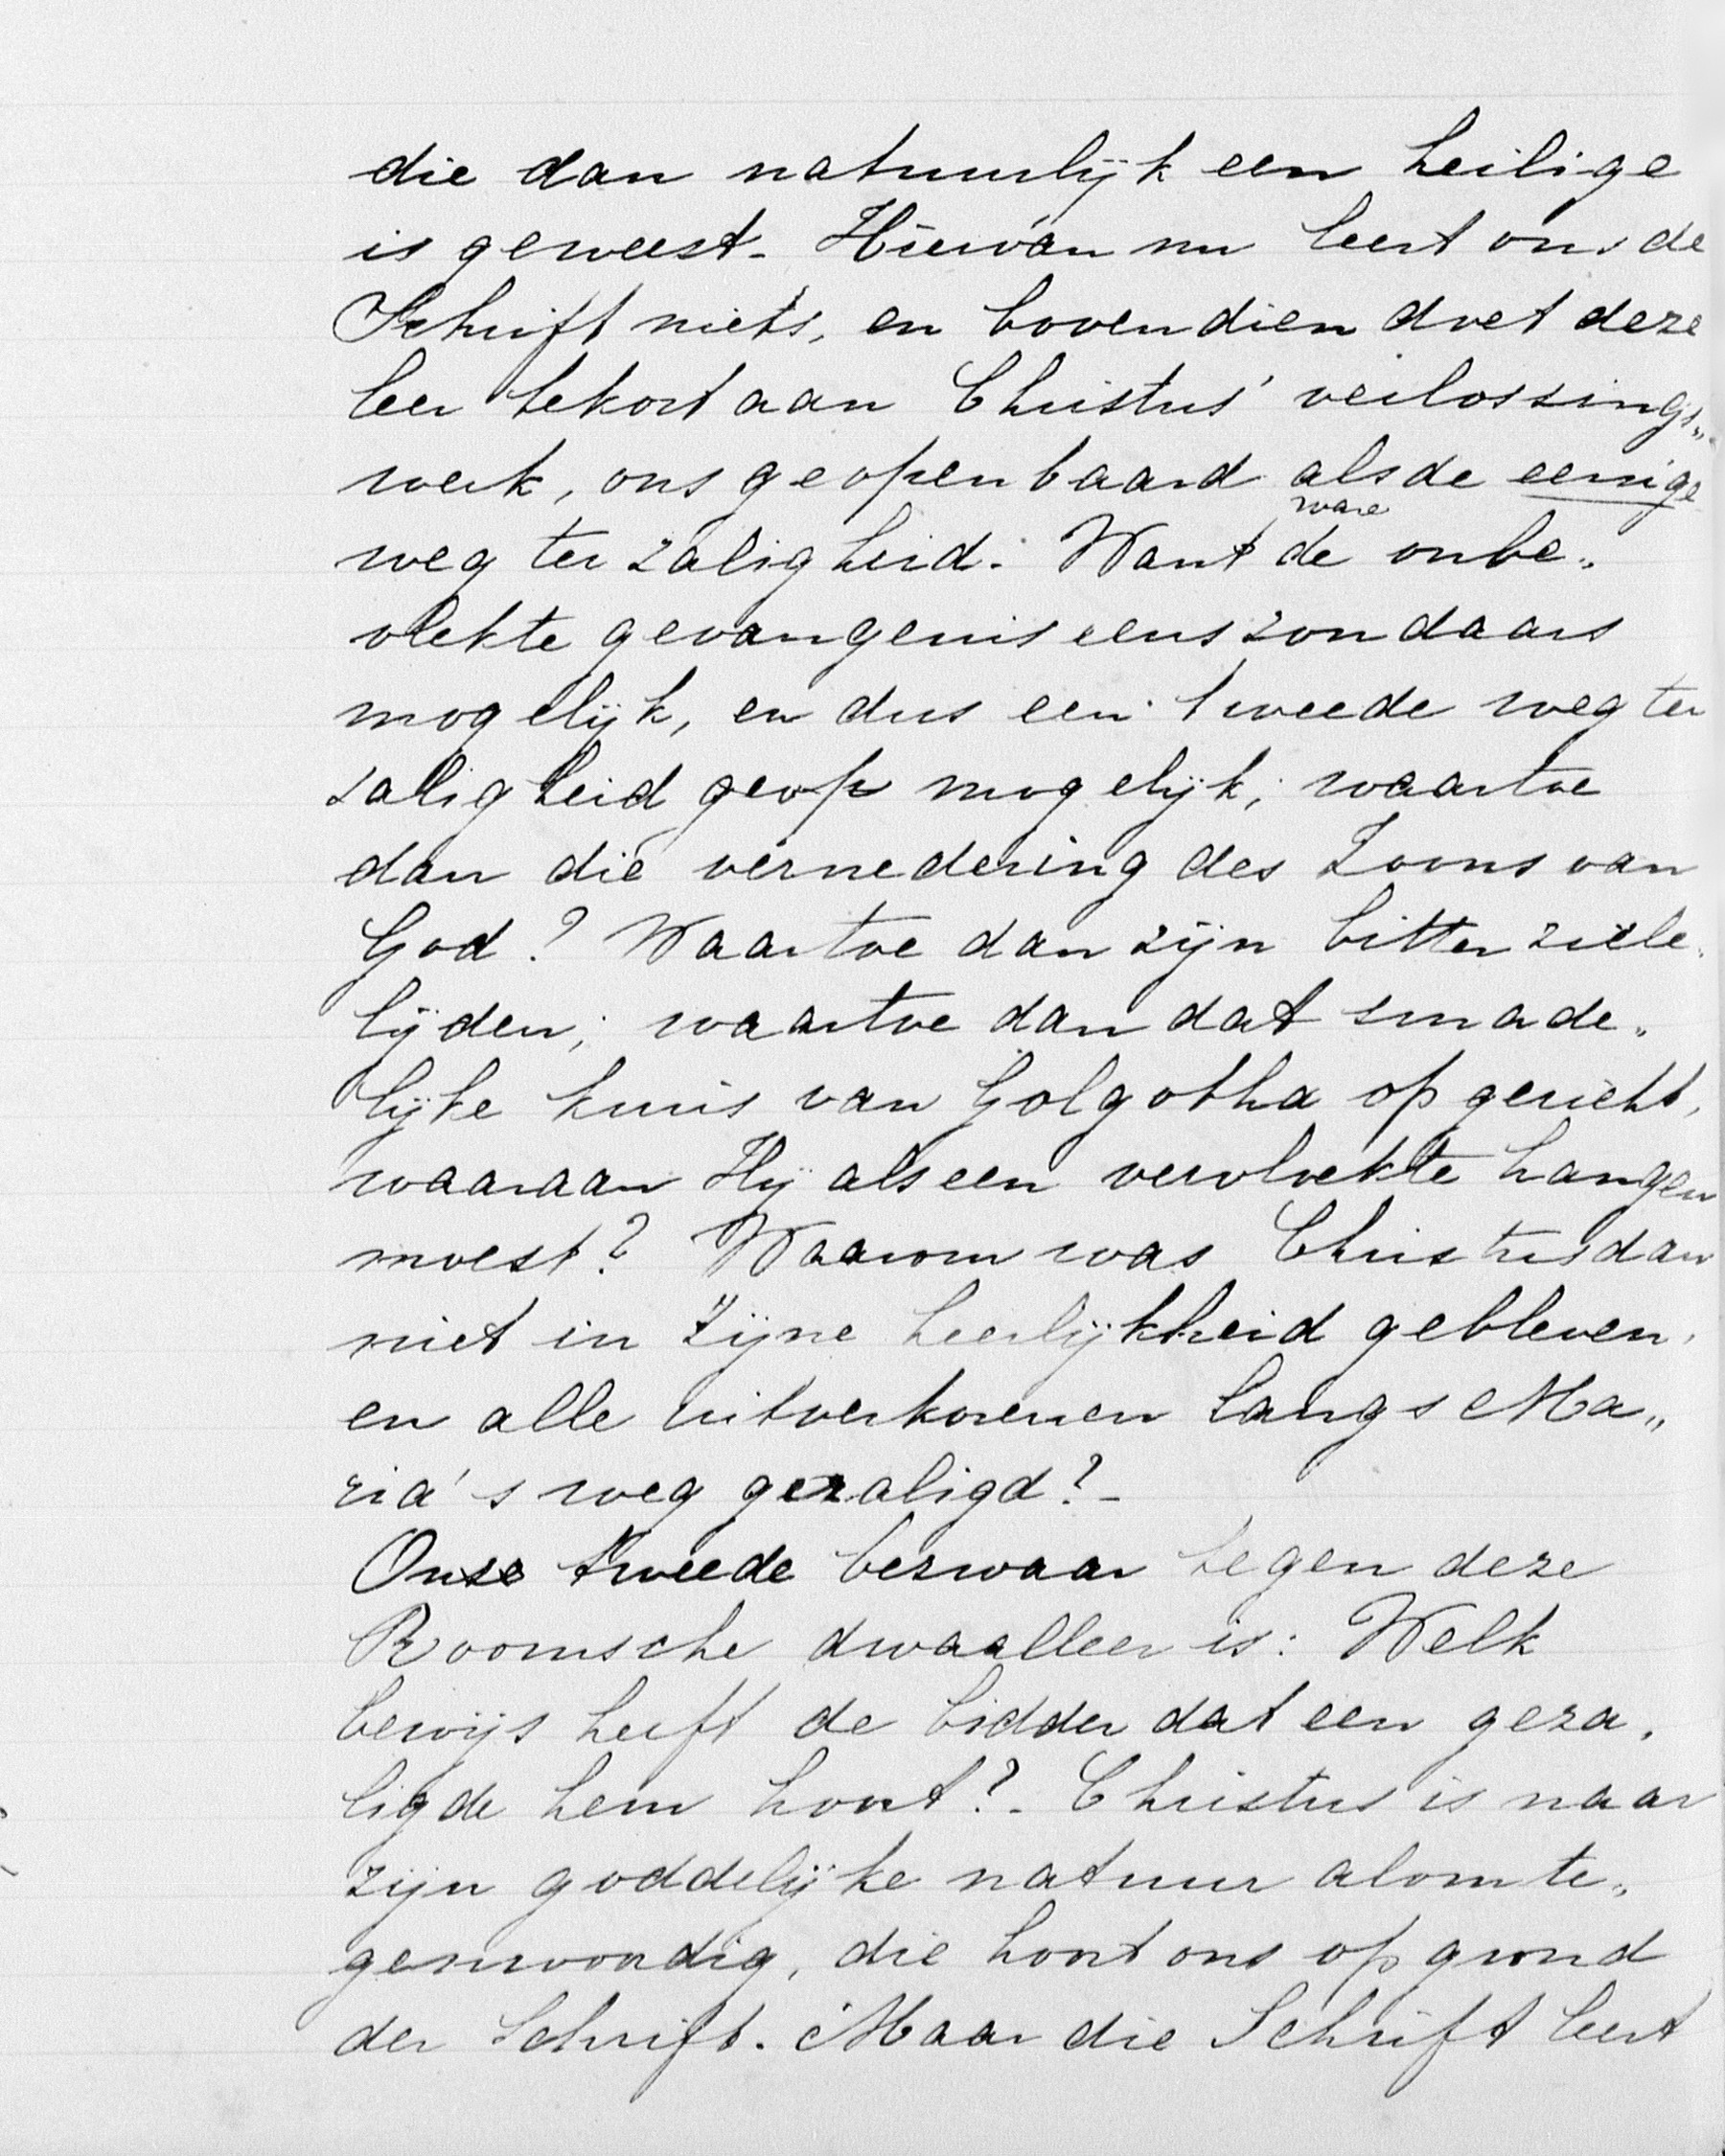 die dan natuurlijk een heilige
is geweest. Hiervan nu leert ons de
Schrift niets, en bovendien doet deze
leer tekort aan Christus' verlossings„
werk, ons geopenbaard als de eenige
weg ter zaligheid. Want ware de onbe„
vlekte gevangenis eens zondaars
mogelijk, en dus een tweede weg ter
zaligheid geop mogelijk; waartoe
dan die vernedering des Zoons van
God? Waartoe dan zijn bitter ziele„
lijden; waartoe dan dat smade„
lijke kruis van Golgotha opgericht,
waaraan Hij als een vervloekte hangen
moest? Waarom was Christus dan
niet in Zijne heerlijkheid gebleven,
en alle uitverkorenen langs Ma„
ria's weg gezaligd? -
Onze tweede bezwaar tegen deze
Roomsche dwaalleer is: Welk
bewijs heeft de bidder dat een geza„
ligde hem hoort? - Christus is naar
zijn goddelijke natuur alomte„
genwoordig, die hoort ons op grond
der Schrift. Maar die Schrift leert